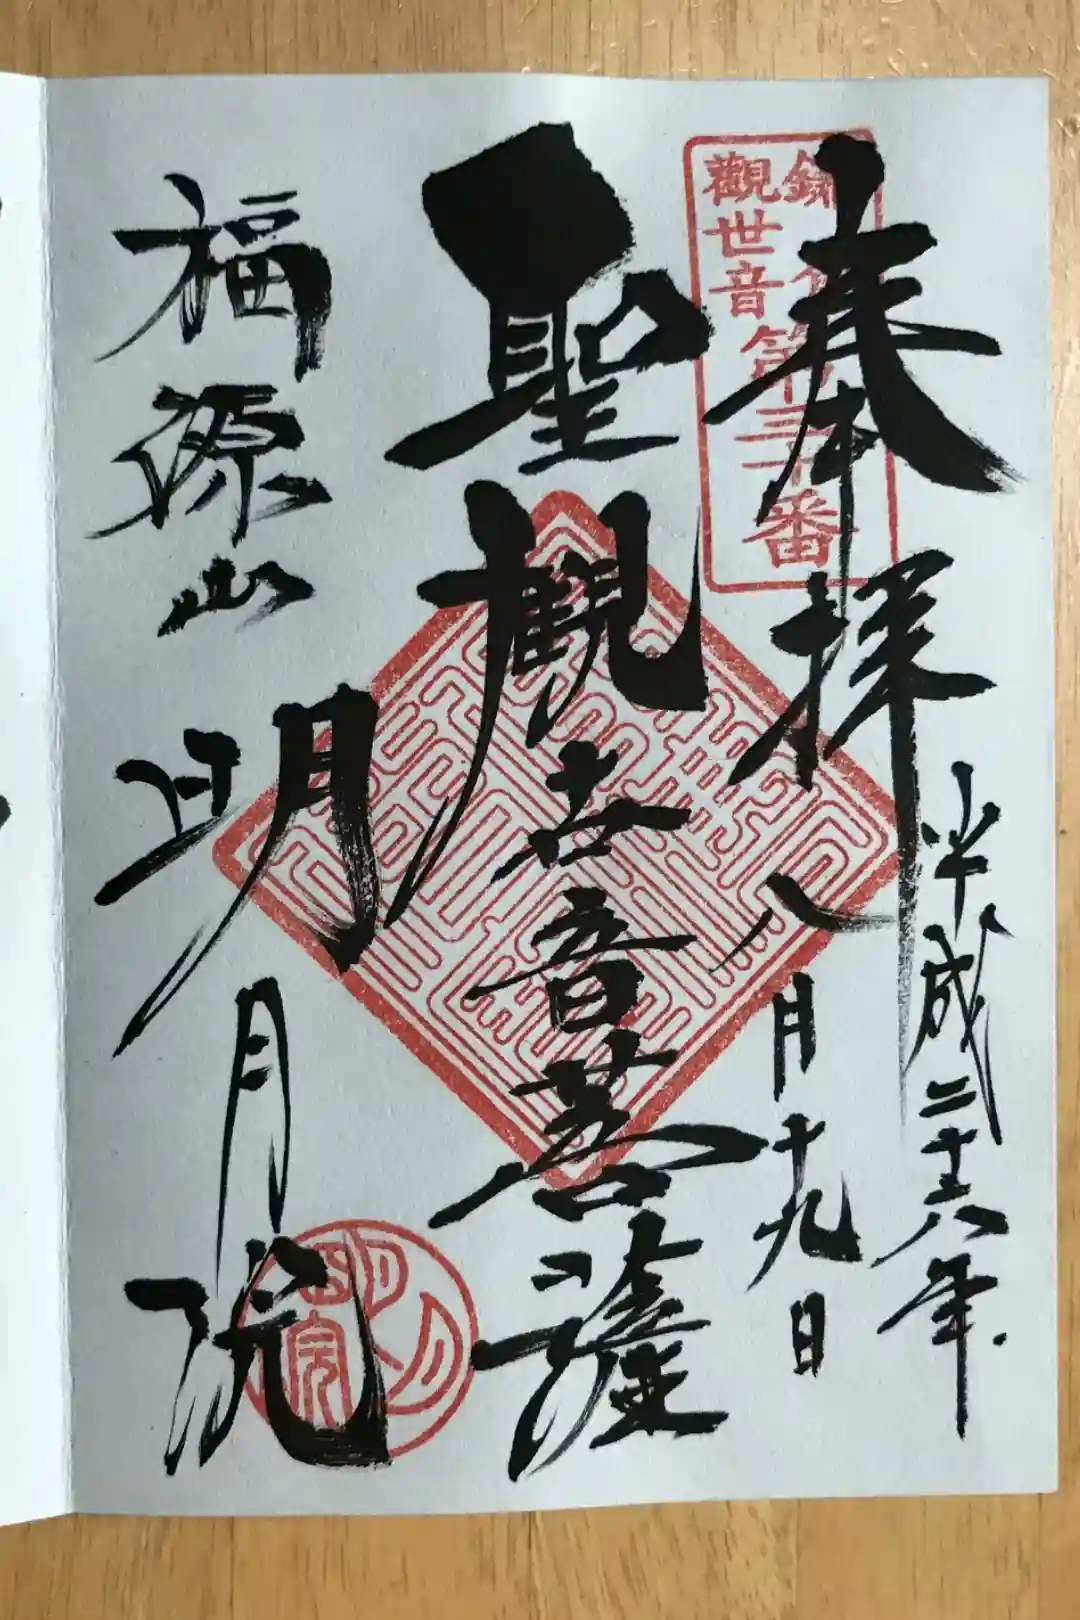 奉拝
平成二十六年
八月十九日
鎌倉
觀世音第三十番
聖觀世音菩薩
福源山
明月院
明月院